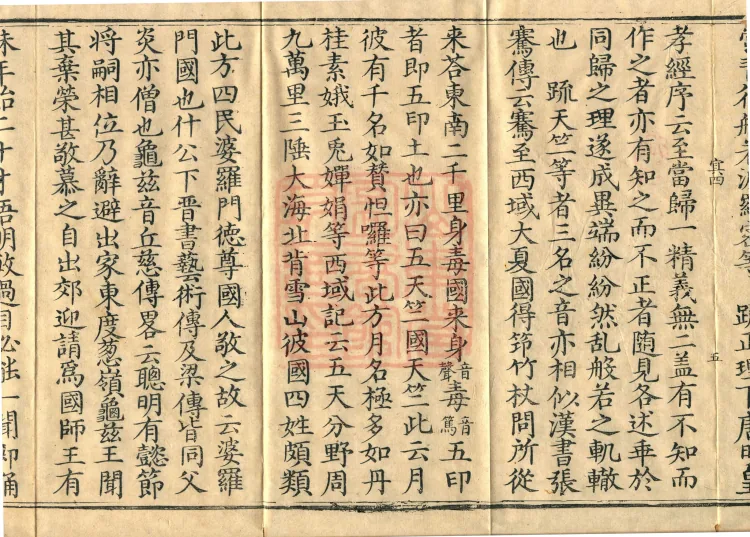 孝經序云至當歸一精義無二盖有不知而
作之者亦有知之而不正者隨見各述乖於
同歸之理遂成異端紛紛然乱般若之軌轍
也 疏天竺等者三名之音亦相似漢書張
騫傳云騫至西域大夏國得筇竹杖問所從
宜四
五
来荅東南二千里身毒國来身音聲毒音篤五印
者即五印土也亦曰五天竺國天竺此云月
彼有千名如賛怛囉等此方月名極多如丹
桂素娥玉兎嬋娟等西域記云五天分野周
九萬里三陲大海北背雪山彼國四姓頗類
此方四民婆羅門徳尊國人敬之故云婆羅
門國也什公下晋書藝術傳及梁傳皆同父
炎亦僧也龜兹音丘慈傳畧云聰明有懿節
将嗣相位乃辭避出家東度葱嶺龜兹王聞
其棄榮甚敬慕之自出郊迎請爲國師王有